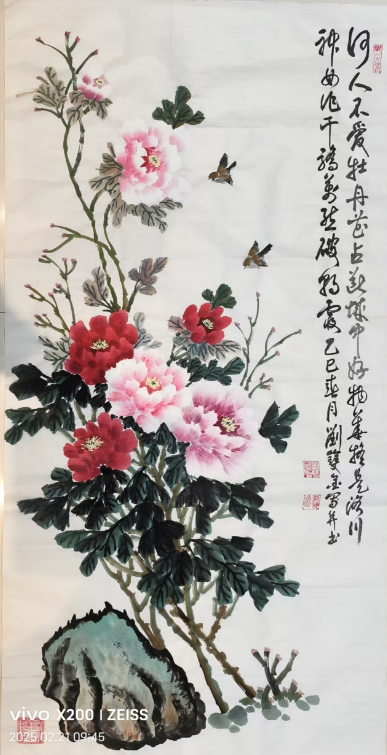 何人不愛牡丹花占斷城中好物華疑是洛川
神女作千嬌萬態破朝霞乙巳春月劉雙寫并書
vivo X200 | ZEISS
2025.02.21 09:45